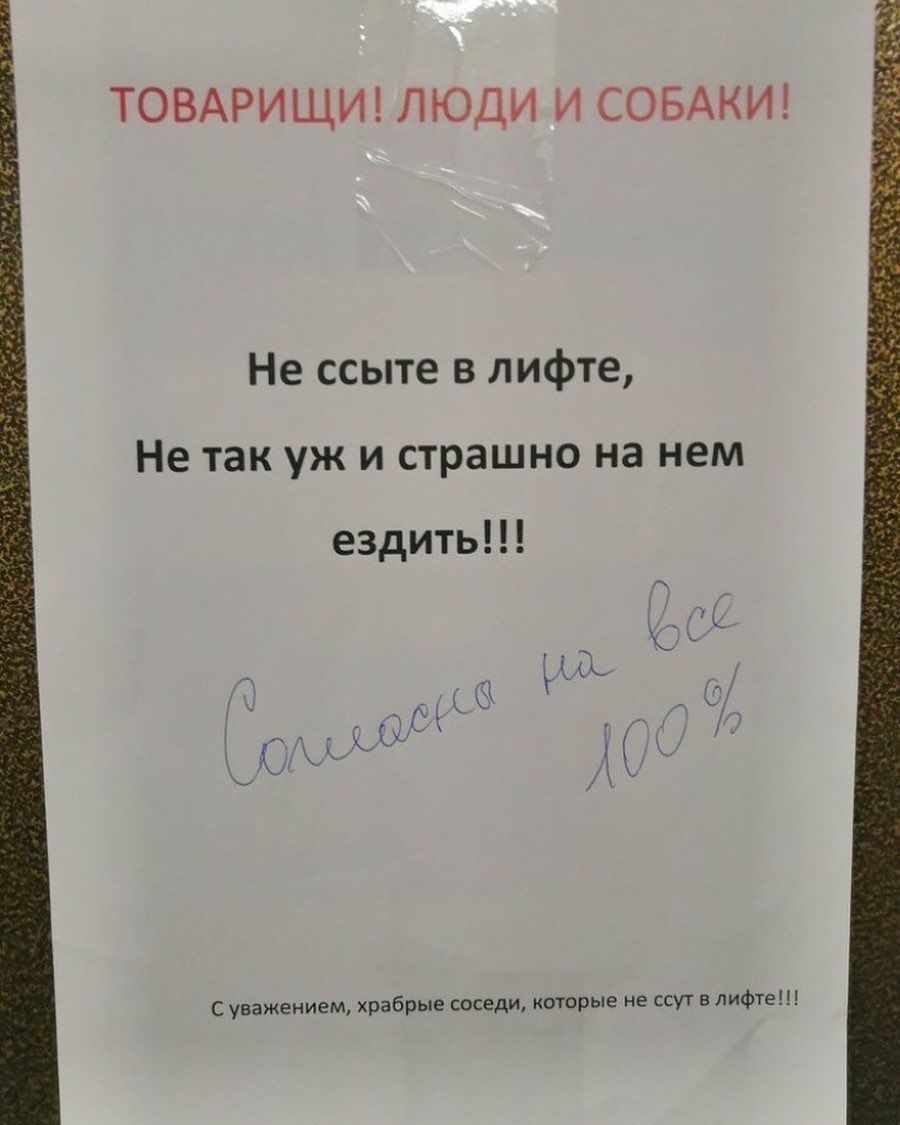 ТОВАРИЩИ! ЛЮДИ И СОБАКИ!
Не ссыте в лифте,
Не так уж и страшно на нем
ездить!!!
Согласна на все
100%
С уважением, храбрые соседи, которые не ссут в лифте!!!